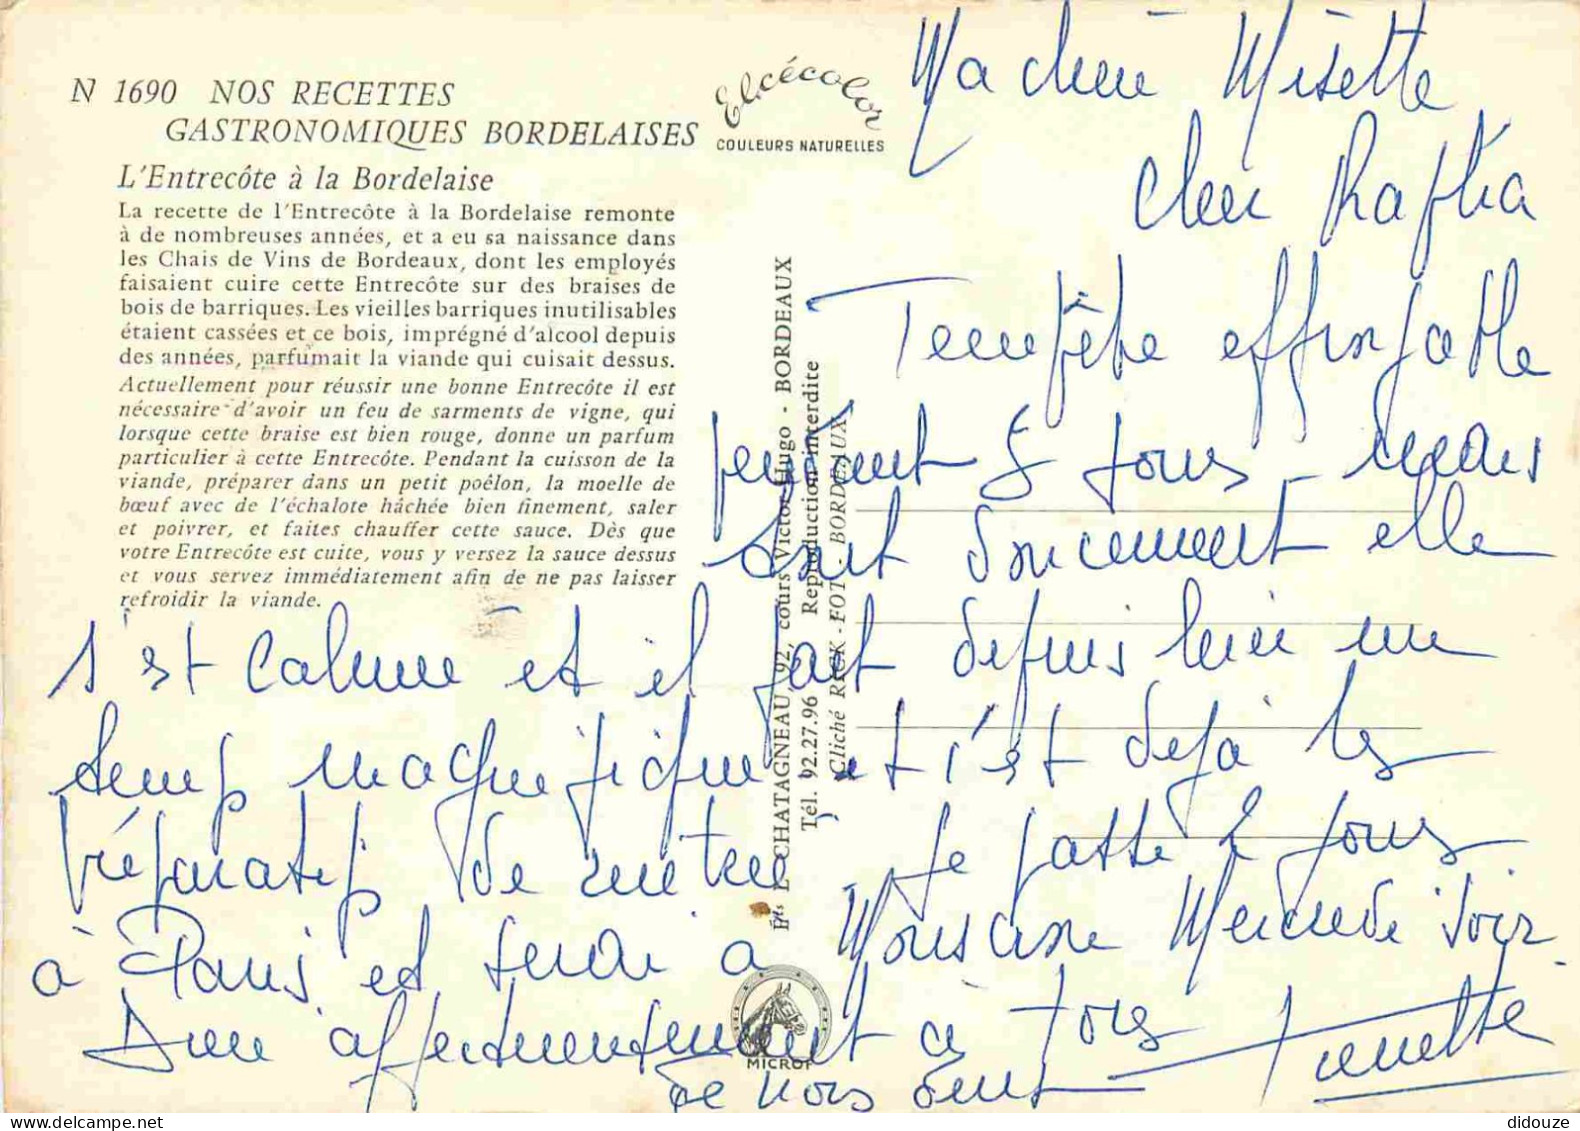 N 1690 NOS RECETTES
GASTRONOMIQUES BORDELAISES
L'Entrecôte à la Bordelaise
La recette de l'Entrecôte à la Bordelaise remonte
à de nombreuses années, et a eu sa naissance dans
les Chais de Vins de Bordeaux, dont les employés
faisaient cuire cette Entrecôte sur des braises de
bois de barriques. Les vieilles barriques inutilisables
étaient cassées et ce bois, imprégné d'alcool depuis
des années, parfumait la viande qui cuisait dessus.
Actuellement pour réussir une bonne Entrecôte il est
nécessaire d'avoir un feu de sarments de vigne, qui
lorsque cette braise est bien rouge, donne un parfum
particulier à cette Entrecôte. Pendant la cuisson de la
viande, préparer dans un petit poêlon, la moelle de
bœuf avec de l'échalote hâchée bien finement, saler
et poivrer, et faites chauffer cette sauce. Dès que
votre Entrecôte est cuite, vous y versez la sauce dessus
et vous servez immédiatement afin de ne pas laisser
refroidir la viande.
Elcécolor
COULEURS NATURELLES
Éts L. CHATAGNEAU, 92, cours Victor-Hugo - BORDEAUX
Tél. 92.27.96 Reproduction interdite
Cliché REEK - FOT BORDEAUX
MICROF
Ma chère Misette
Cher
Tempête effroyable
pendant 5 jours mais
tout doucement elle
s'est calmée et il fait depuis hier un
temps magnifique et c'est déjà les
préparatifs de rentrée Je passe 2 jours
à Paris et serai à Mercredi soir
Bien affectueusement à tous
de nous deux
didouze